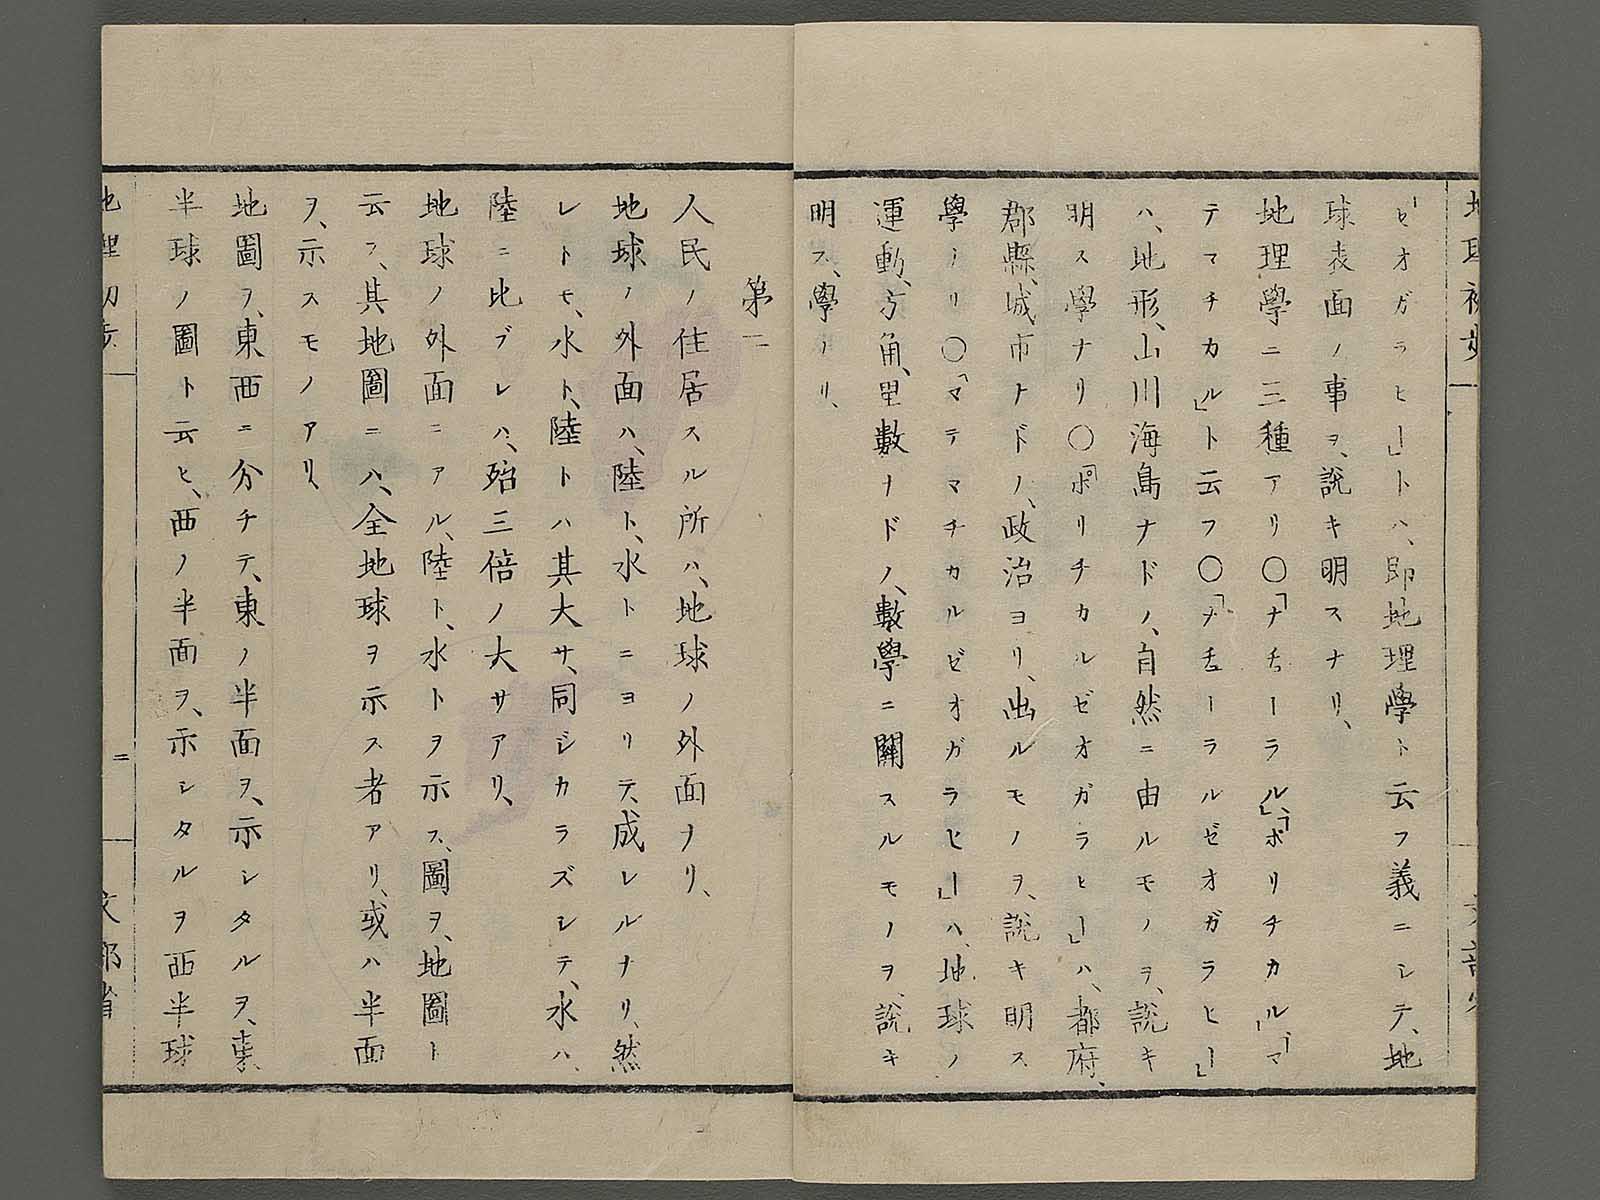 地理初步　文部省
「ゼオガラヒー」トハ、即地理學ト云フ義ニシテ、地
球表面ノ事ヲ、說キ明スナリ、
地理學ニ三種アリ〇「ナチューラル」「ポリチカル」「マ
テマチカル」ト云フ〇「ナチューラルゼオガラヒー」
ハ、地形、山川海島ナドノ、自然ニ由ルモノヲ、說キ
明ス學ナリ〇「ポリチカルゼオガラヒー」ハ、都府、
郡縣、城市ナドノ、政治ヨリ、出ルモノヲ、說キ明ス
學ナリ〇「マテマチカルゼオガラヒー」ハ、地球ノ
運動、方角、里數ナドノ、數學ニ關スルモノヲ、說キ
明ス、學ナリ、
第二
人民ノ住居スル所ハ、地球ノ外面ナリ、
地球ノ外面ハ、陸ト、水トニヨリテ、成レルナリ、然
レトモ、水ト、陸トハ其大サ、同ジカラズシテ、水ハ、
陸ニ比ブレハ、殆三倍ノ大サアリ、
地球ノ外面ニアル、陸ト、水トヲ示ス、圖ヲ、地圖ト
云フ、其地圖ニハ、全地球ヲ示ス者アリ、或ハ半面
ヲ、示スモノアリ、
地圖ヲ、東西ニ分チテ、東ノ半面ヲ、示シタルヲ、東
半球ノ圖ト云ヒ、西ノ半面ヲ、示シタルヲ西半球
地理初步　二　文部省